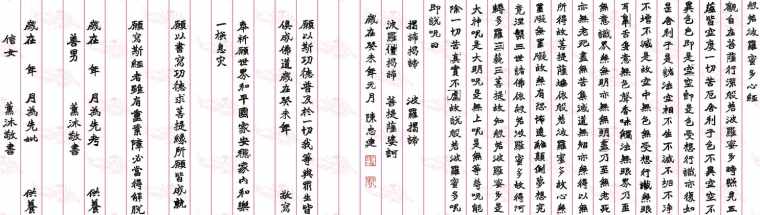 般若波羅蜜多心經
觀自在菩薩行深般若波羅蜜多時照見五
蘊皆空度一切苦厄舍利子色不異空空不
異色色即是空空即是色受想行識亦復如
是舍利子是諸法空相不生不滅不垢不淨
不增不減是故空中無色無受想行識無眼
耳鼻舌身意無色聲香味觸法無眼界乃至
無意識界無無明亦無無明盡乃至無老死
亦無老死盡無苦集滅道無智亦無得以無
所得故菩提薩埵依般若波羅蜜多故心無
罣礙無罣礙故無有恐怖遠離顛倒夢想究
竟涅槃三世諸佛依般若波羅蜜多故得阿
耨多羅三藐三菩提故知般若波羅蜜多是
大神咒是大明咒是無上咒是無等等咒能
除一切苦真實不虛故說般若波羅蜜多咒
即說咒曰
揭諦揭諦 波羅揭諦
波羅僧揭諦 菩提薩婆訶
歲在癸未年元月 陳忠建
願以斯功德普及於一切我等與眾生皆
俱成佛道歲在癸未年 敬寫
奉祈願世界和平國家安穩家內和樂
一族息災
願以書寫功德求菩提緣所願皆成就
願寫斯經者雖有重業障必當得解脫
歲在 年 月為先考 供養
善男 薰沐敬書
歲在 年 月為先妣 供養
信女 薰沐敬書